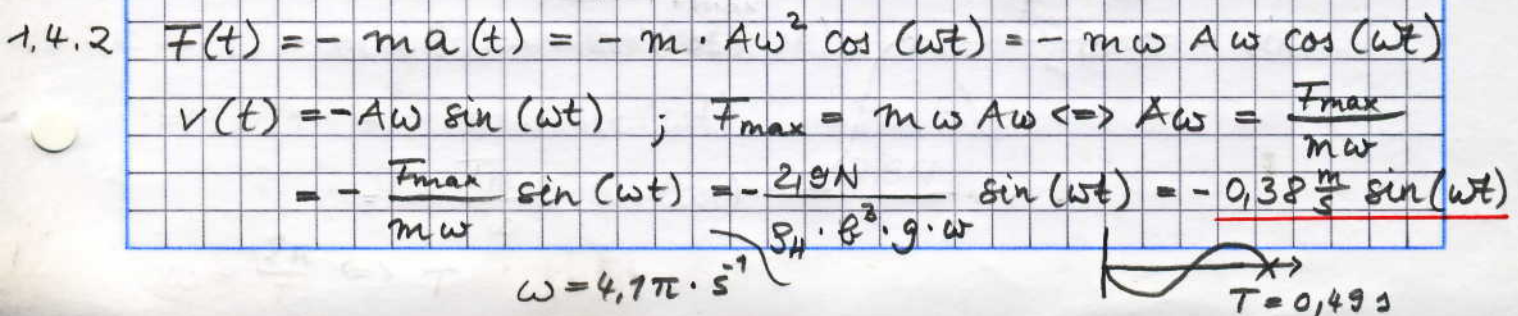 1.4.2 F(t) = - m a(t) = - m · Aω² cos (ωt) = - mω Aω cos (ωt)
v(t) = -Aω sin (ωt) ; Fmax = mω Aω <=> Aω = Fmax / mω
= - Fmax / mω sin (ωt) = - 2,9N / ρH · b³ · g · ω sin (ωt) = - 0,38 m/s sin (ωt)
ω = 4,1π · s⁻¹
T = 0,49 s